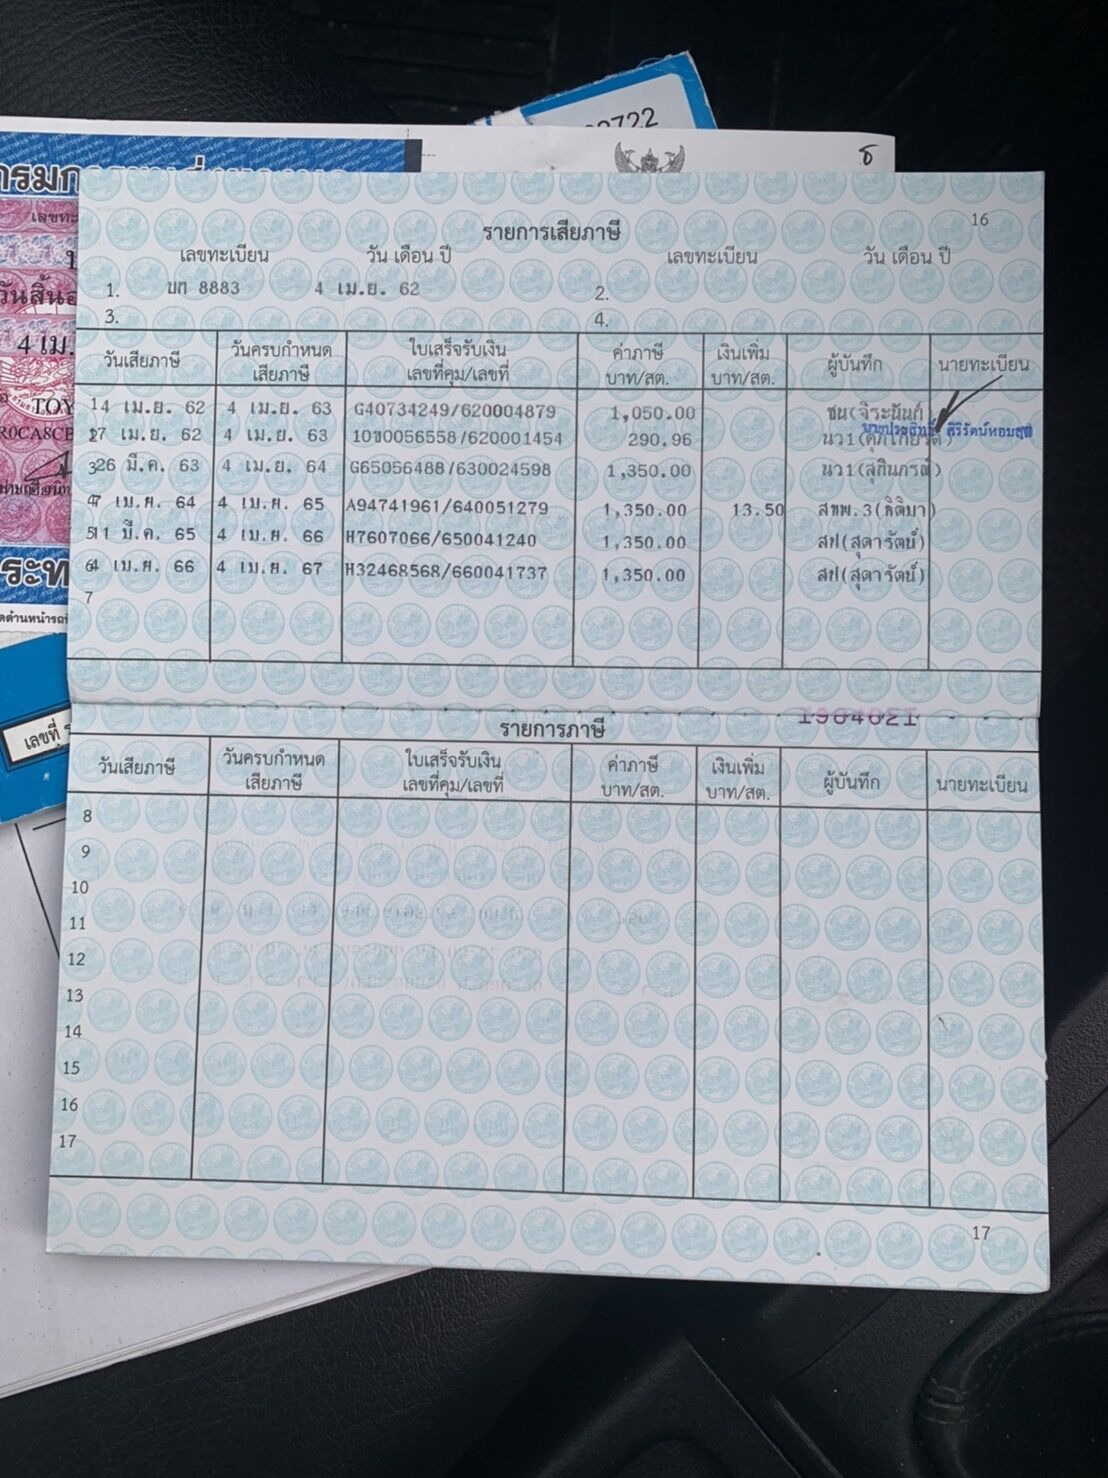 2722
8
16
รายการเสียภาษี
เลขทะเบียน วัน เดือน ปี เลขทะเบียน วัน เดือน ปี
1. บท 8883 4 เม.ย. 62 2.
3. 4.
วันเสียภาษี วันครบกำหนดเสียภาษี ใบเสร็จรับเงิน เลขที่คุม/เลขที่ ค่าภาษี บาท/สต. เงินเพิ่ม บาท/สต. ผู้บันทึก นายทะเบียน
1 4 เม.ย. 62 4 เม.ย. 63 G40734249/620004879 1,050.00 ชน(จิระนันท์
27 เม.ย. 62 4 เม.ย. 63 10ข0056558/620001454 290.96 นว1
326 มี.ค. 63 4 เม.ย. 64 G65056488/630024598 1,350.00 นว1(สุทินภรณ์)
47 เม.ย. 64 4 เม.ย. 65 A94741961/640051279 1,350.00 13.50 สขพ.3(กิติมา)
511 มี.ค. 65 4 เม.ย. 66 H7607066/650041240 1,350.00 สป(สุดารัตน์)
64 เม.ย. 66 4 เม.ย. 67 H32468568/660041737 1,350.00 สป(สุดารัตน์)
7
1904021
รายการภาษี
วันเสียภาษี วันครบกำหนดเสียภาษี ใบเสร็จรับเงิน เลขที่คุม/เลขที่ ค่าภาษี บาท/สต. เงินเพิ่ม บาท/สต. ผู้บันทึก นายทะเบียน
8
9
10
11
12
13
14
15
16
17
17
เลขทะ
วันสิ้นอ
4 เม.
TOY
R0CA8CE
ระท
ดด้านหน้ารถ
เลขที่